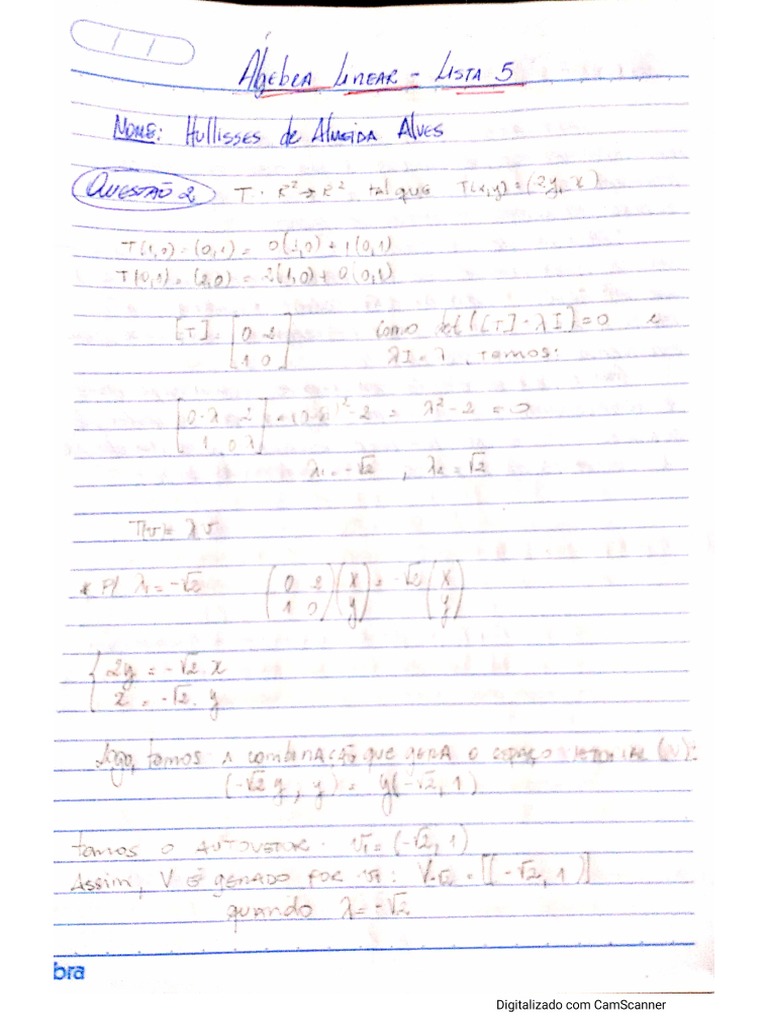 Álgebra Linear - Lista 5
Nome: Hullisses de Almeida Alves
Questão 2 T: R² → R² tal que T(x,y) = (2y, x)
T(1,0) = (0,1) = 0(1,0) + 1(0,1)
T(0,1) = (2,0) = 2(1,0) + 0(0,1)
[T] = [0 2 Como det([T] - λI) = 0 e
1 0] λI = λ, temos:
[0-λ 2 = (0-λ)² - 2 = λ² - 2 = 0
1 0-λ]
λ₁ = -√2 , λ₂ = √2
T(v) = λv
* P/ λ₁ = -√2 (0 2 (x = -√2 (x
1 0) y) y)
{2y = -√2 . x
x = -√2 . y
Logo, temos a combinação que gera o espaço vetorial (v):
(-√2 y, y) = y(-√2, 1)
temos o autovetor. v₁ = (-√2, 1)
Assim, V é gerado por v₁: V-√2 = [(-√2, 1)]
quando λ = -√2
bra
Digitalizado com CamScanner